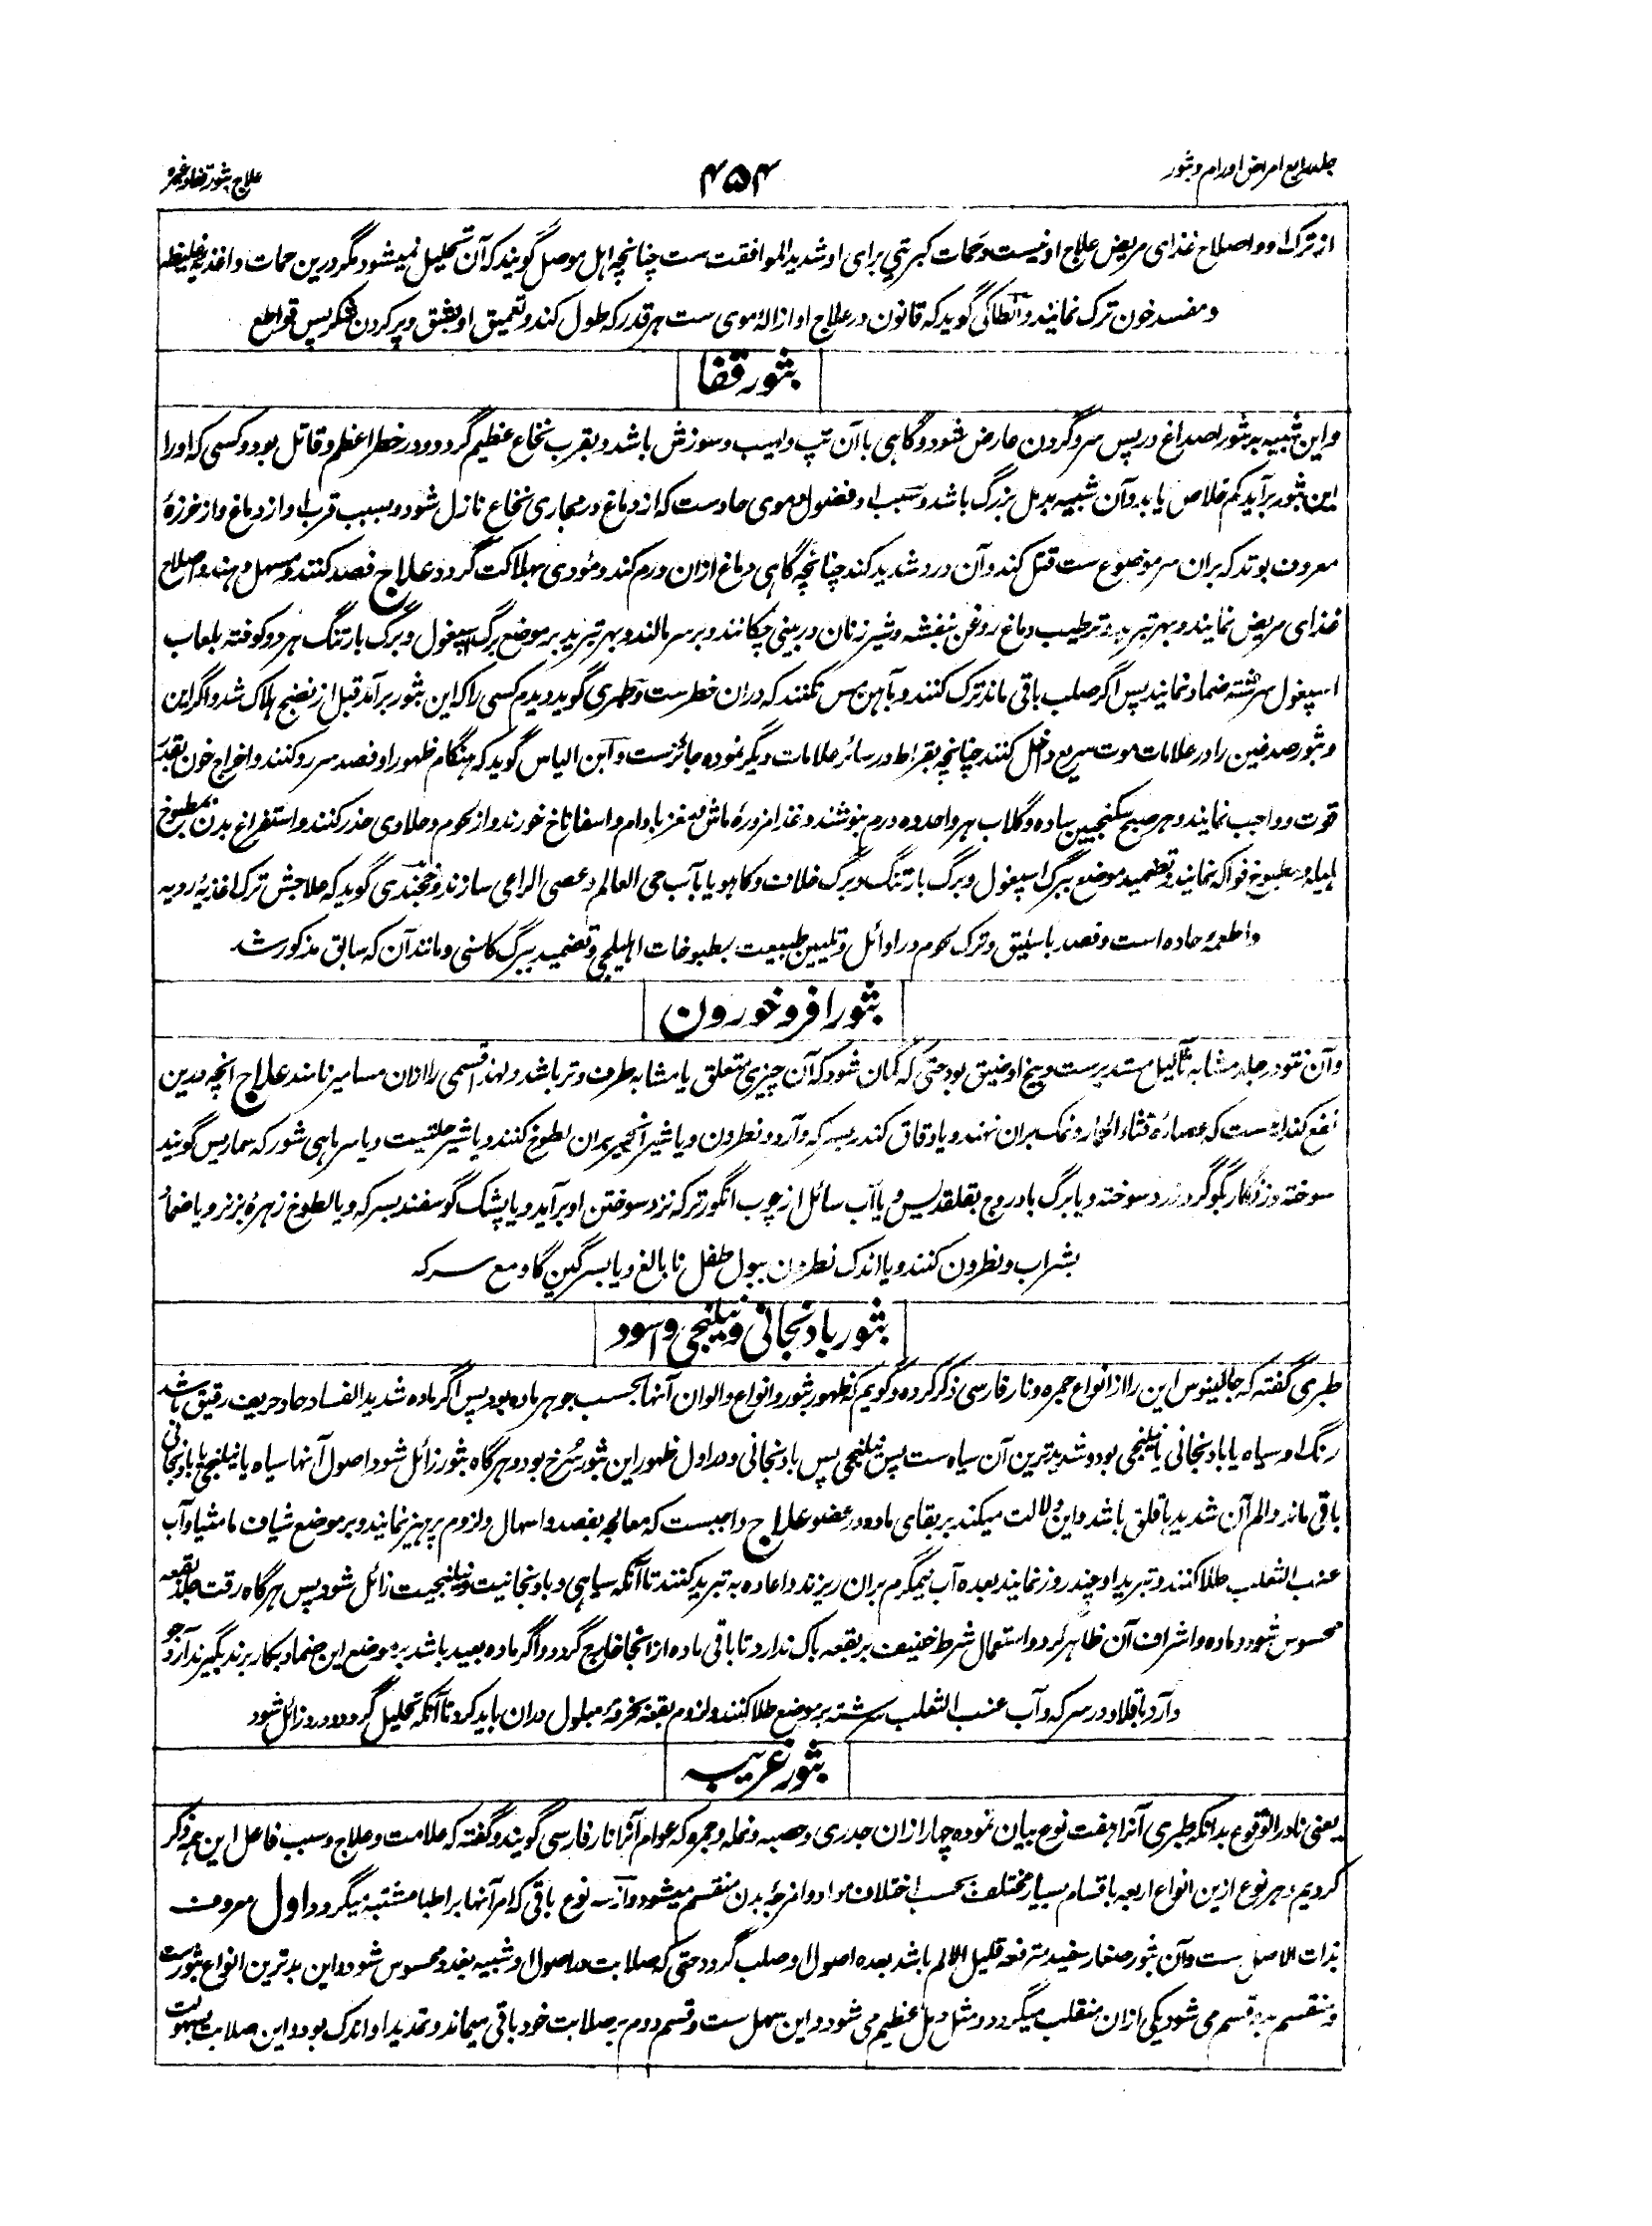 جلد رابع امراض اورام و بثور
۴۵۴
علاج بثور قفا وغیره
از ترک او و اصلاح غذای مریض علاج او نیست و حمات کبریتی برای او شدید الموافقت ست چنانچه اهل موصل گویند که آن تحلیل نمیشود مگر درین حمات و اغذیه غلیظه
و مفسد خون ترک نمایند و انطاکی گوید که قانون در علاج او ازاله موی ست هر قدر که طول کند و تعمیق او بشق و پر کردن بشکر پس قواطع
بثور قفا
و این شبیه به بثور اصداغ در پس سر و گردن عارض شود و گاهی با آن تپ و لهیب و سوزش باشد و بقرب نخاع عظیم گردد و در خطر اعظم و قاتل بود و کسی که او را
این بثور برآید کم خلاص یابد و آن شبیه بدمل بزرگ باشد و سبب او فضول دموی حاد ست که از دماغ در مجاری نخاع نازل شود و بسبب قرب او از دماغ و از خرزهٔ
معروف بوتد که بران سر موضوع ست قتل کند و آن درد شدید کند چنانچه گاهی دماغ ازان ورم کند و مؤدی بهلاکت گردد علاج فصد کنند و مسهل دهند و اصلاح
غذای مریض نمایند و بهر تبرید و ترطیب دماغ روغن بنفشه و شیر زنان در بینی چکانند و بر سر مالند و بهر تبرید بر موضع برگ اسپغول و برگ بارتنگ هر دو کوفته بلعاب
اسپغول سرشته ضماد نمایند پس اگر صلب باقی ماند ترک کنند و بآهن مس نکنند که دران خطرست و طبری گوید دیدم کسی را که این بثور برآمد قبل از نضج هلاک شد و اگر این
و بثور صدغین را در علامات موت سریع داخل کنند چنانچه بقراط در سائر علامات دیگر نموده جائزست و ابن الیاس گوید که هنگام ظهور او فصد سررو کنند و اخراج خون بقدر
قوت و واجب نمایند و هر صبح سکنجبین ساده و گلاب هر واحد ده درم بنوشند و غذا مزورهٔ ماش بمغز بادام و اسفاناخ خورند و از لحوم و حلاوی حذر کنند و استفراغ بدن بمطبوخ
هلیله و مطبوخ فواکه نمایند و تضمید موضع ببرگ اسپغول و برگ بارتنگ و برگ خلاف و کاهو یا بآب حی العالم و عصی الراعی سازند و خجندی گوید که علاجش ترک اغذیهٔ ردیه
و اطعمهٔ حاده است و فصد باسلیق و ترک لحوم در اوائل و تلیین طبیعت بمطبوخات اهلیلجی و تضمید ببرگ کاسنی و مانند آن که سابق مذکور شد
بثور افروخورون
و آن نتو در جلد مشابه ثآلیل مستدیر ست و بیخ او ضیق بود حتی که گمان شود که آن چیزی متعلق یا مشابه طرف وتر باشد و لهذا قسمی را ازان مسامیر نامند علاج انچه درین
نفع کند اینست که عصارهٔ قثاء الحمار و نمک بران نهند و یا دقاق کندر بسرکه و آرد و نطرون و یا شیر انجیر بران لطوخ کنند و یا شیر حلتیت و یا سر ماهی شور که سماریس گویند
سوخته و زنگار بگوگرد زرد سوخته و یا برگ بادروج بقلقدیس و یا آب سائل از چوب انگور تر که نزد سوختن او برآید و یا پشک گوسفند بسرکه و یا لطوخ زهرهٔ بز نر و یا ضماد
بشراب و نطرون کنند و یا اندک نطرون ببول طفل نابالغ و یا بسرگین گاو مع سرکه
بثور بادنجانی و نیلنجی و اسود
طبری گفته که جالینوس این را از انواع جمره و نار فارسی ذکر کرده و گویم که ظهور بثور و انواع و الوان آنها بحسب جوهر ماده بود پس اگر ماده شدید الفساد حاد حریف رقیق باشد
رنگ او سیاه یا بادنجانی یا نیلنجی بود و شدیدترین آن سیاه ست پس نیلنجی پس بادنجانی و در اول ظهور این بثور سُرخ بود و هر گاه بثور زائل شود اصول آنها سیاه یا نیلنجی یا بادنجانی
باقی ماند و الم آن شدید با قلق باشد و این دلالت میکند بر بقای ماده در عضو علاج واجبست که معالجه بفصد و اسهال و لزوم پرهیز نمایند و بر موضع شیاف مامیثا و آب
عنب الثعلب طلا کنند و تبرید او چند روز نمایند بعده آب نیمگرم بران ریزند و اعاده به تبرید کنند تا آنکه سیاهی و بادنجانیت و نیلنجیت زائل شود پس هر گاه رقت جلد بقعه
محسوس شود و ماده و اشراف آن ظاهر گردد استعمال شرط خفیف بر بقعه باک ندارد تا باقی ماده از انجا خارج گردد و اگر ماده بعید باشد بر موضع این ضماد بکار برند بگیرند آرد جو
و آرد باقلا و در سرکه و آب عنب الثعلب سرشته بر موضع طلا کنند و لزوم بقعه بخرقهٔ مبلول دران باید کرد تا آنکه تحلیل گردد و درد زائل شود
بثور غریبه
یعنی نادر الوقوع بدانکه طبری آنرا هفت نوع بیان نموده چهار ازان جدری و حصبه و نمله و جمره که عوام آنرا نار فارسی گویند و گفته که علامت و علاج و سبب فاعل این همه ذکر
کردیم و هر نوع ازین انواع اربعه باقسام بسیار مختلف بحسب اختلاف مواد و امزجهٔ بدن منقسم میشود و از سه نوع باقی که امر آنها بر اطبا مشتبه میگردد اول معروف
بذات الاصل ست و آن بثور صغار سفید مترفعه قلیل الالم باشد بعده اصول او صلب گردد حتی که صلابت در اصول او شبیه بغدد محسوس شود و این بدترین انواع بثورست
و منقسم بدو قسم می شود یکی ازان منقلب میگردد و مثل دمل عظیم می شود و این سهل ست و قسم دوم بر صلابت خود باقی میماند و تمدید او اندک بود و این صلابت بسهولت